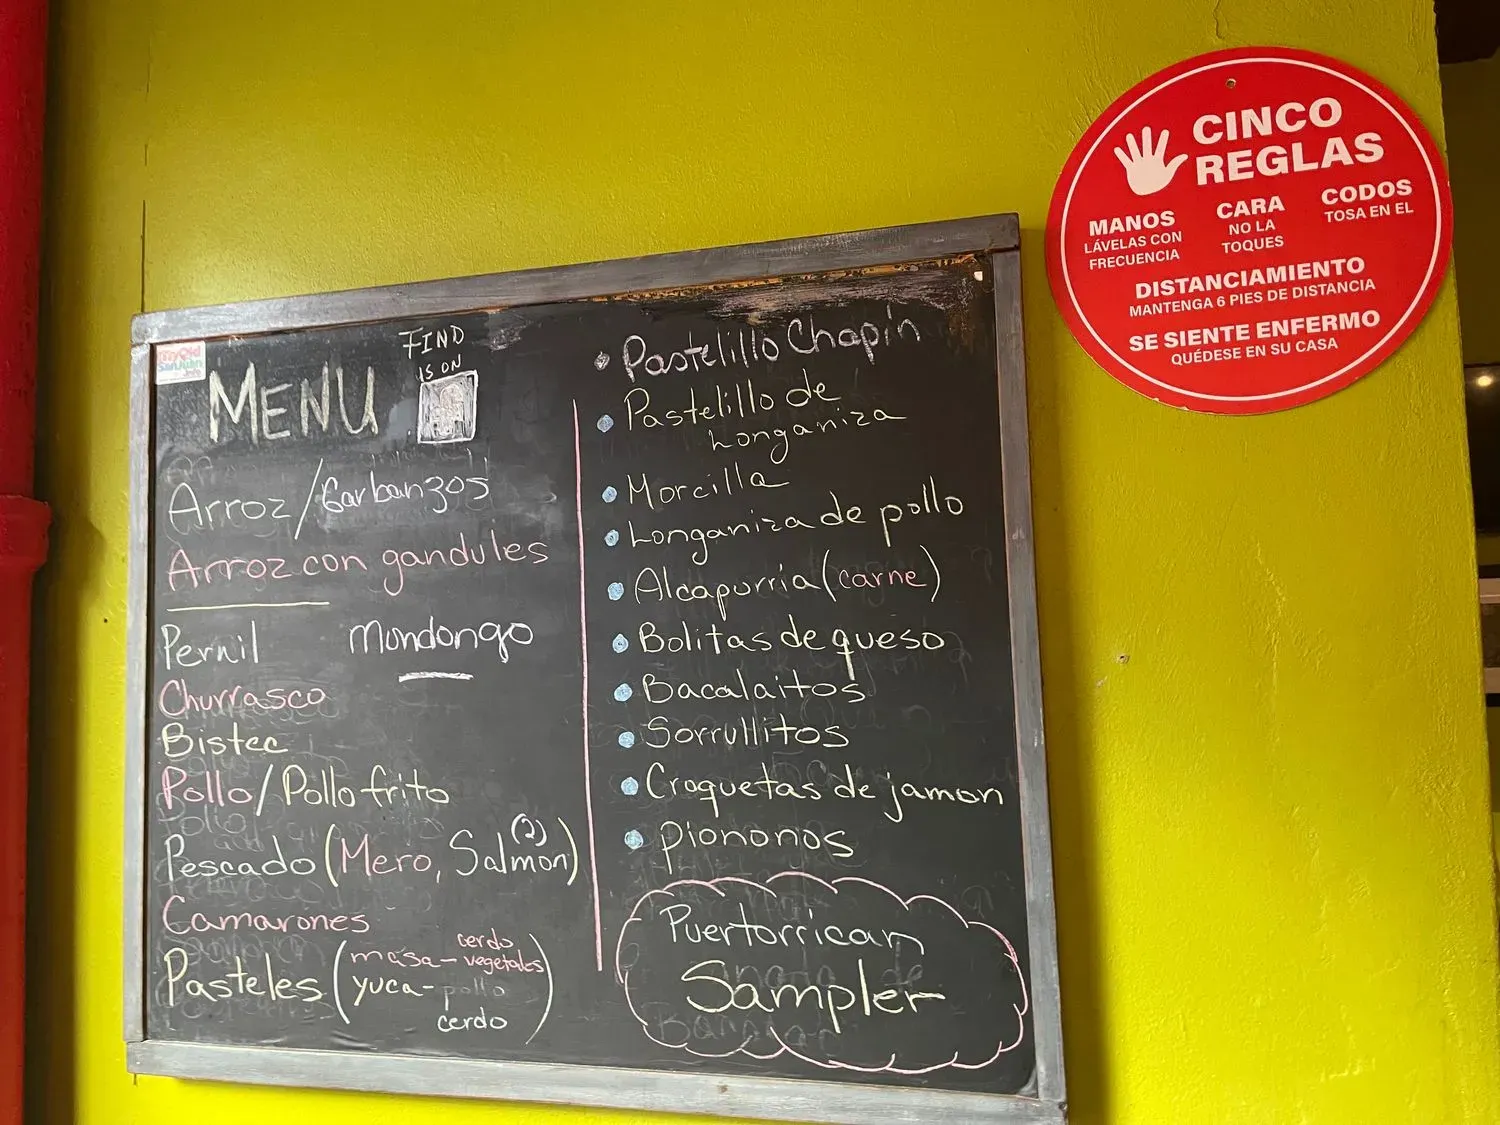 MyOld
SanJuan
.Info
MENU
FIND
IS ON
Arroz/Garbanzos
Arroz con gandules
Pernil
Mondongo
Churrasco
Bistec
Pollo/Pollo frito
Pescado (Mero, Salmon) (2)
Camarones
Pasteles (masa- cerdo
vegetales
yuca- pollo
cerdo)
Pastelillo Chapín
Pastelillo de
Longaniza
Morcilla
Longaniza de pollo
Alcapurria (carne)
Bolitas de queso
Bacalaitos
Sorrullitos
Croquetas de jamon
Piononos
Puertorrican
Sampler
CINCO
REGLAS
MANOS
LÁVELAS CON
FRECUENCIA
CARA
NO LA
TOQUES
CODOS
TOSA EN EL
DISTANCIAMIENTO
MANTENGA 6 PIES DE DISTANCIA
SE SIENTE ENFERMO
QUÉDESE EN SU CASA